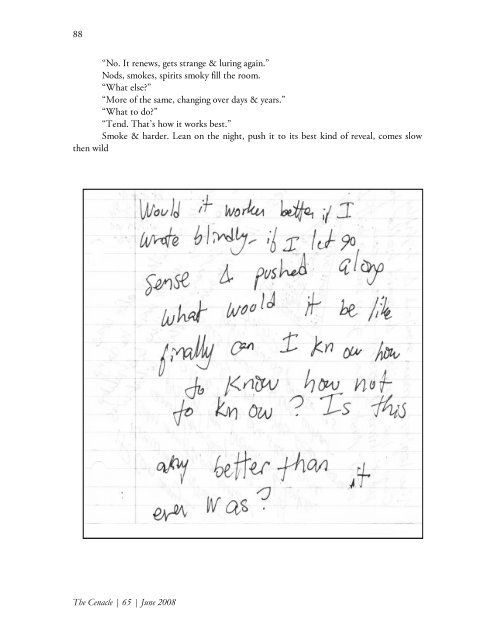 88
“No. It renews, gets strange & luring again.”
Nods, smokes, spirits smoky fill the room.
“What else?”
“More of the same, changing over days & years.”
“What to do?”
“Tend. That’s how it works best.”
Smoke & harder. Lean on the night, push it to its best kind of reveal, comes slow
then wild
Would it worken better if I
wrote blindly– if I let go
sense & pushed along
what woold it be like
finally can I know how
to know how not
to know? Is this
any better than it
ever was?
The Cenacle | 65 | June 2008